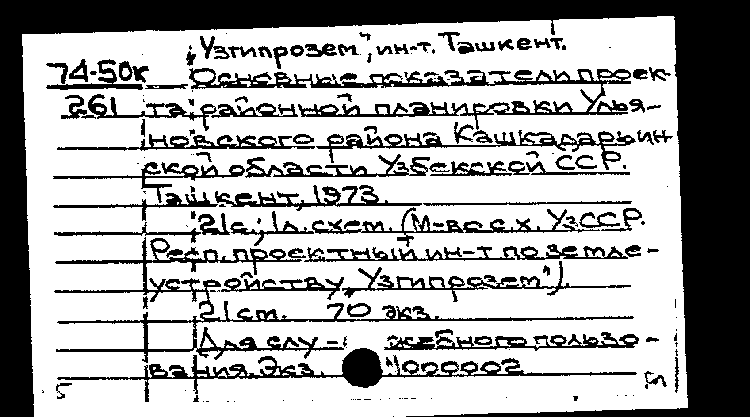 „Узгипрозем”, ин-т. Ташкент.
74-50к Основные показатели проек-
261 та районной планировки Улья-
новского района Кашкадарьин
ской области Узбекской ССР.
Ташкент, 1973.
21 с.; 1 л. схем. (М-во с.х. УзССР.
Респ. проектный ин-т по земле-
устройству „Узгипрозем”).
21 см. 70 экз.
Для слу- жебного пользо-
вания. Экз. №000002